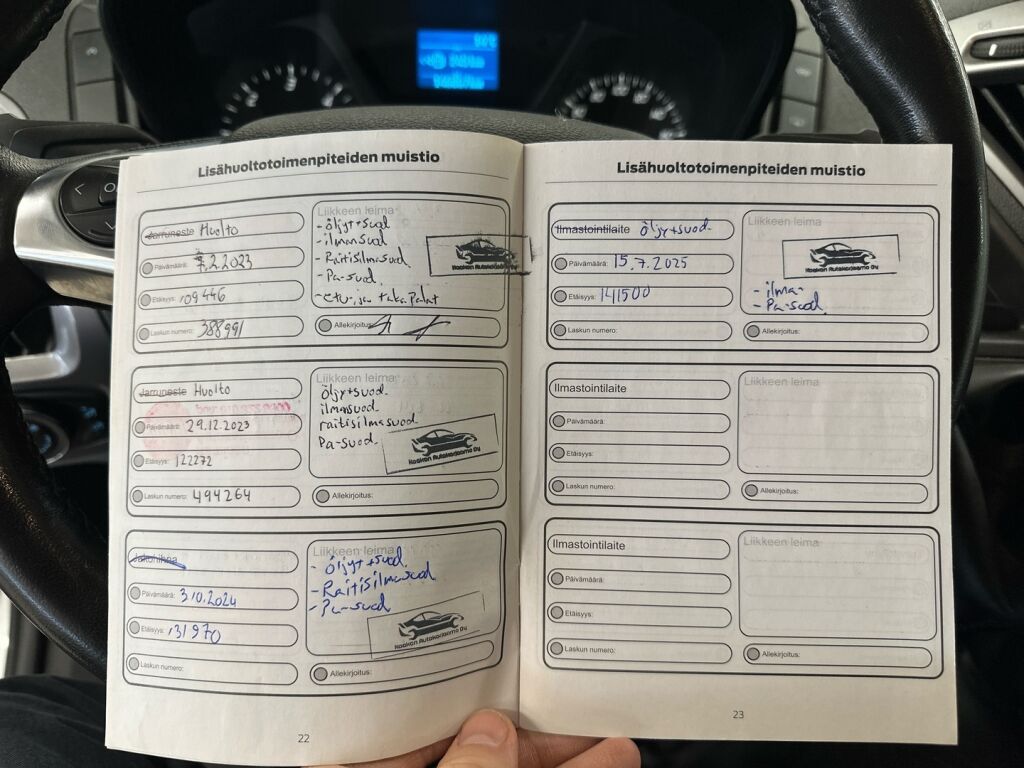 Lisähuoltotoimenpiteiden muistio
Jarruneste Huolto
Päivämäärä: 7.2.2023
Etäisyys: 109446
Laskun numero: 388991
Liikkeen leima
- öljyt+suod
- ilmansuod
- Raitisilmasuod
- Pa-suod.
- etu- ja taka palat
Kaakon Autokorjaamo Oy
Allekirjoitus:
Jarruneste Huolto
Päivämäärä: 29.12.2023
Etäisyys: 122272
Laskun numero: 494264
Liikkeen leima
öljyt+suod.
ilmansuod.
raitisilmasuod
Pa-suod.
Kaakon Autokorjaamo Oy
Allekirjoitus:
Jakohihna
Päivämäärä: 3.10.2024
Etäisyys: 131970
Laskun numero:
Liikkeen leima
- öljyt+suod.
- Raitisilmasuod
- Pa-suod
Kaakon Autokorjaamo Oy
Allekirjoitus:
22
Lisähuoltotoimenpiteiden muistio
Ilmastointilaite öljyt+suod.
Päivämäärä: 15.7.2025
Etäisyys: 141500
Laskun numero:
Liikkeen leima
Kaakon Autokorjaamo Oy
- ilma-
- Pa-suod.
Allekirjoitus:
Ilmastointilaite
Päivämäärä:
Etäisyys:
Laskun numero:
Liikkeen leima
Allekirjoitus:
Ilmastointilaite
Päivämäärä:
Etäisyys:
Laskun numero:
Liikkeen leima
Allekirjoitus:
23